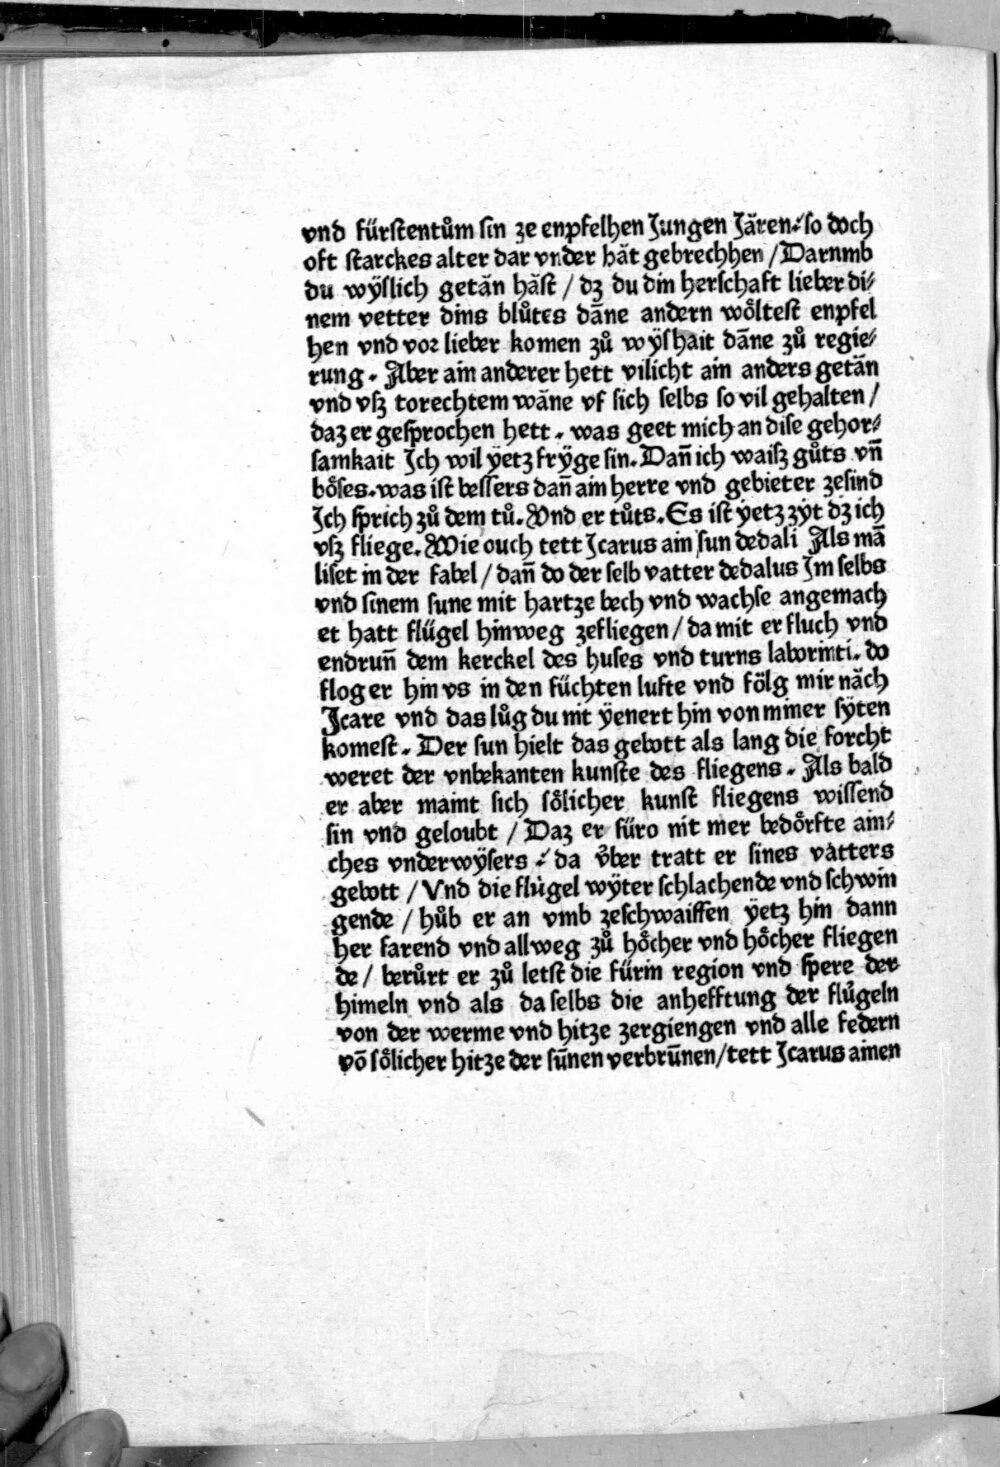 vnd fürstentům sin ze enpfelhen Jungen Jären ⸝ so doch
oft starckes alter dar vnder hät gebrechhen / Darnmb
du wÿslich getän häst / dz du din herschaft lieber di⸗
nem vetter dins blůtes dāne andern wöltest enpfel
hen vnd vor lieber komen zů wÿshait dāne zů regie⸗
rung . Aber ain anderer hett vilicht ain anders getän
vnd vſz torechtem wāne vf sich selbs so vil gehalten /
daz er gesprochen hett . was geet mich an dise gehor⸗
samkait Jch wil ÿetz frÿge sin . Dan̄ ich waiſz gůts vn̄
böses . was ist bessers dan̄ ain herre vnd gebieter zesind
Jch sprich zů dem tů . Vnd er tůts . Es ist ÿetz zÿt dz ich
vſz fliege . Wie ouch tett Jcarus ain sun dedali Als mā
liset in der fabel / dan̄ do der selb vatter dedalus Jm selbs
vnd sinem sune mit hartze bech vnd wachse angemach
et hatt flügel hinweg zefliegen / da mit er fluch vnd
endrun̄ dem kerckel des huses vnd turns laborinti . do
flog er hin vs in den füchten lufte vnd fölg mir näch
Jcare vnd das lůg du nit ÿenert hin von miner sÿten
komest . Der sun hielt das gebott als lang die forcht
weret der vnbekanten kunste des fliegens . Als bald
er aber maint sich sölicher kunst fliegens wissend
sin vnd geloubt / Daz er füro nit mer bedörfte ain⸗
ches vnderwÿsers ⸝ da über tratt er sines vatters
gebott / Vnd die flügel wÿter schlachende vnd schwin
gende / hůb er an vmb zeschwaiffen ÿetz hin dann
her farend vnd allweg zů höcher vnd höcher fliegen
de / berůrt er zů letst die fürin region vnd spere der
himeln vnd als da selbs die anhefftung der flügeln
von der werme vnd hitze zergiengen vnd alle federn
vō sölicher hitze der sūnen verbrūnen / tett Jcarus ainen